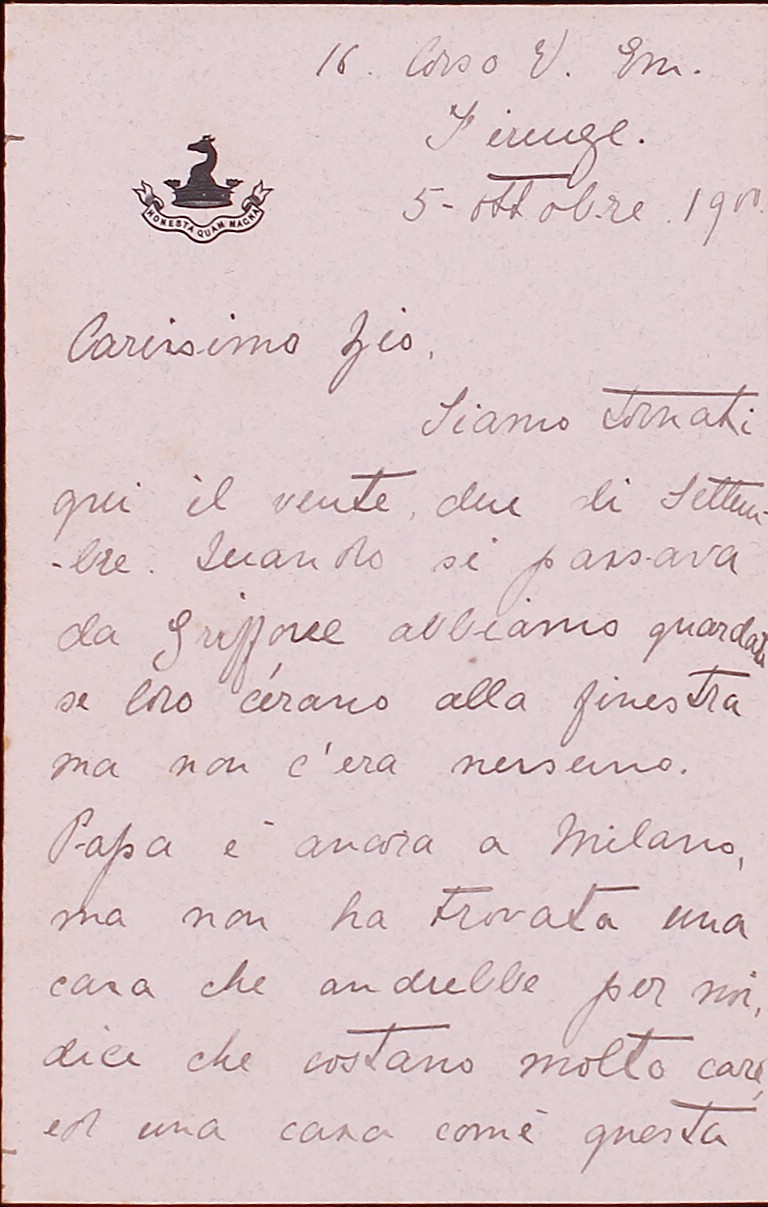 16. Corso V. Em.
Firenze.
5- ottobre. 1900.
HONESTA QUAM MAGNA
Carissimo Zio,
Siamo tornati
qui il vente, due di Settem-
-bre. Quando si passava
da Griffone abbiamo guardato
se loro c'érano alla finestra
ma non c'era nessuno.
Papa è ancora a Milano,
ma non ha trovata una
casa che andrebbe per noi,
dice che costano molto care,
ed una casa comè questa